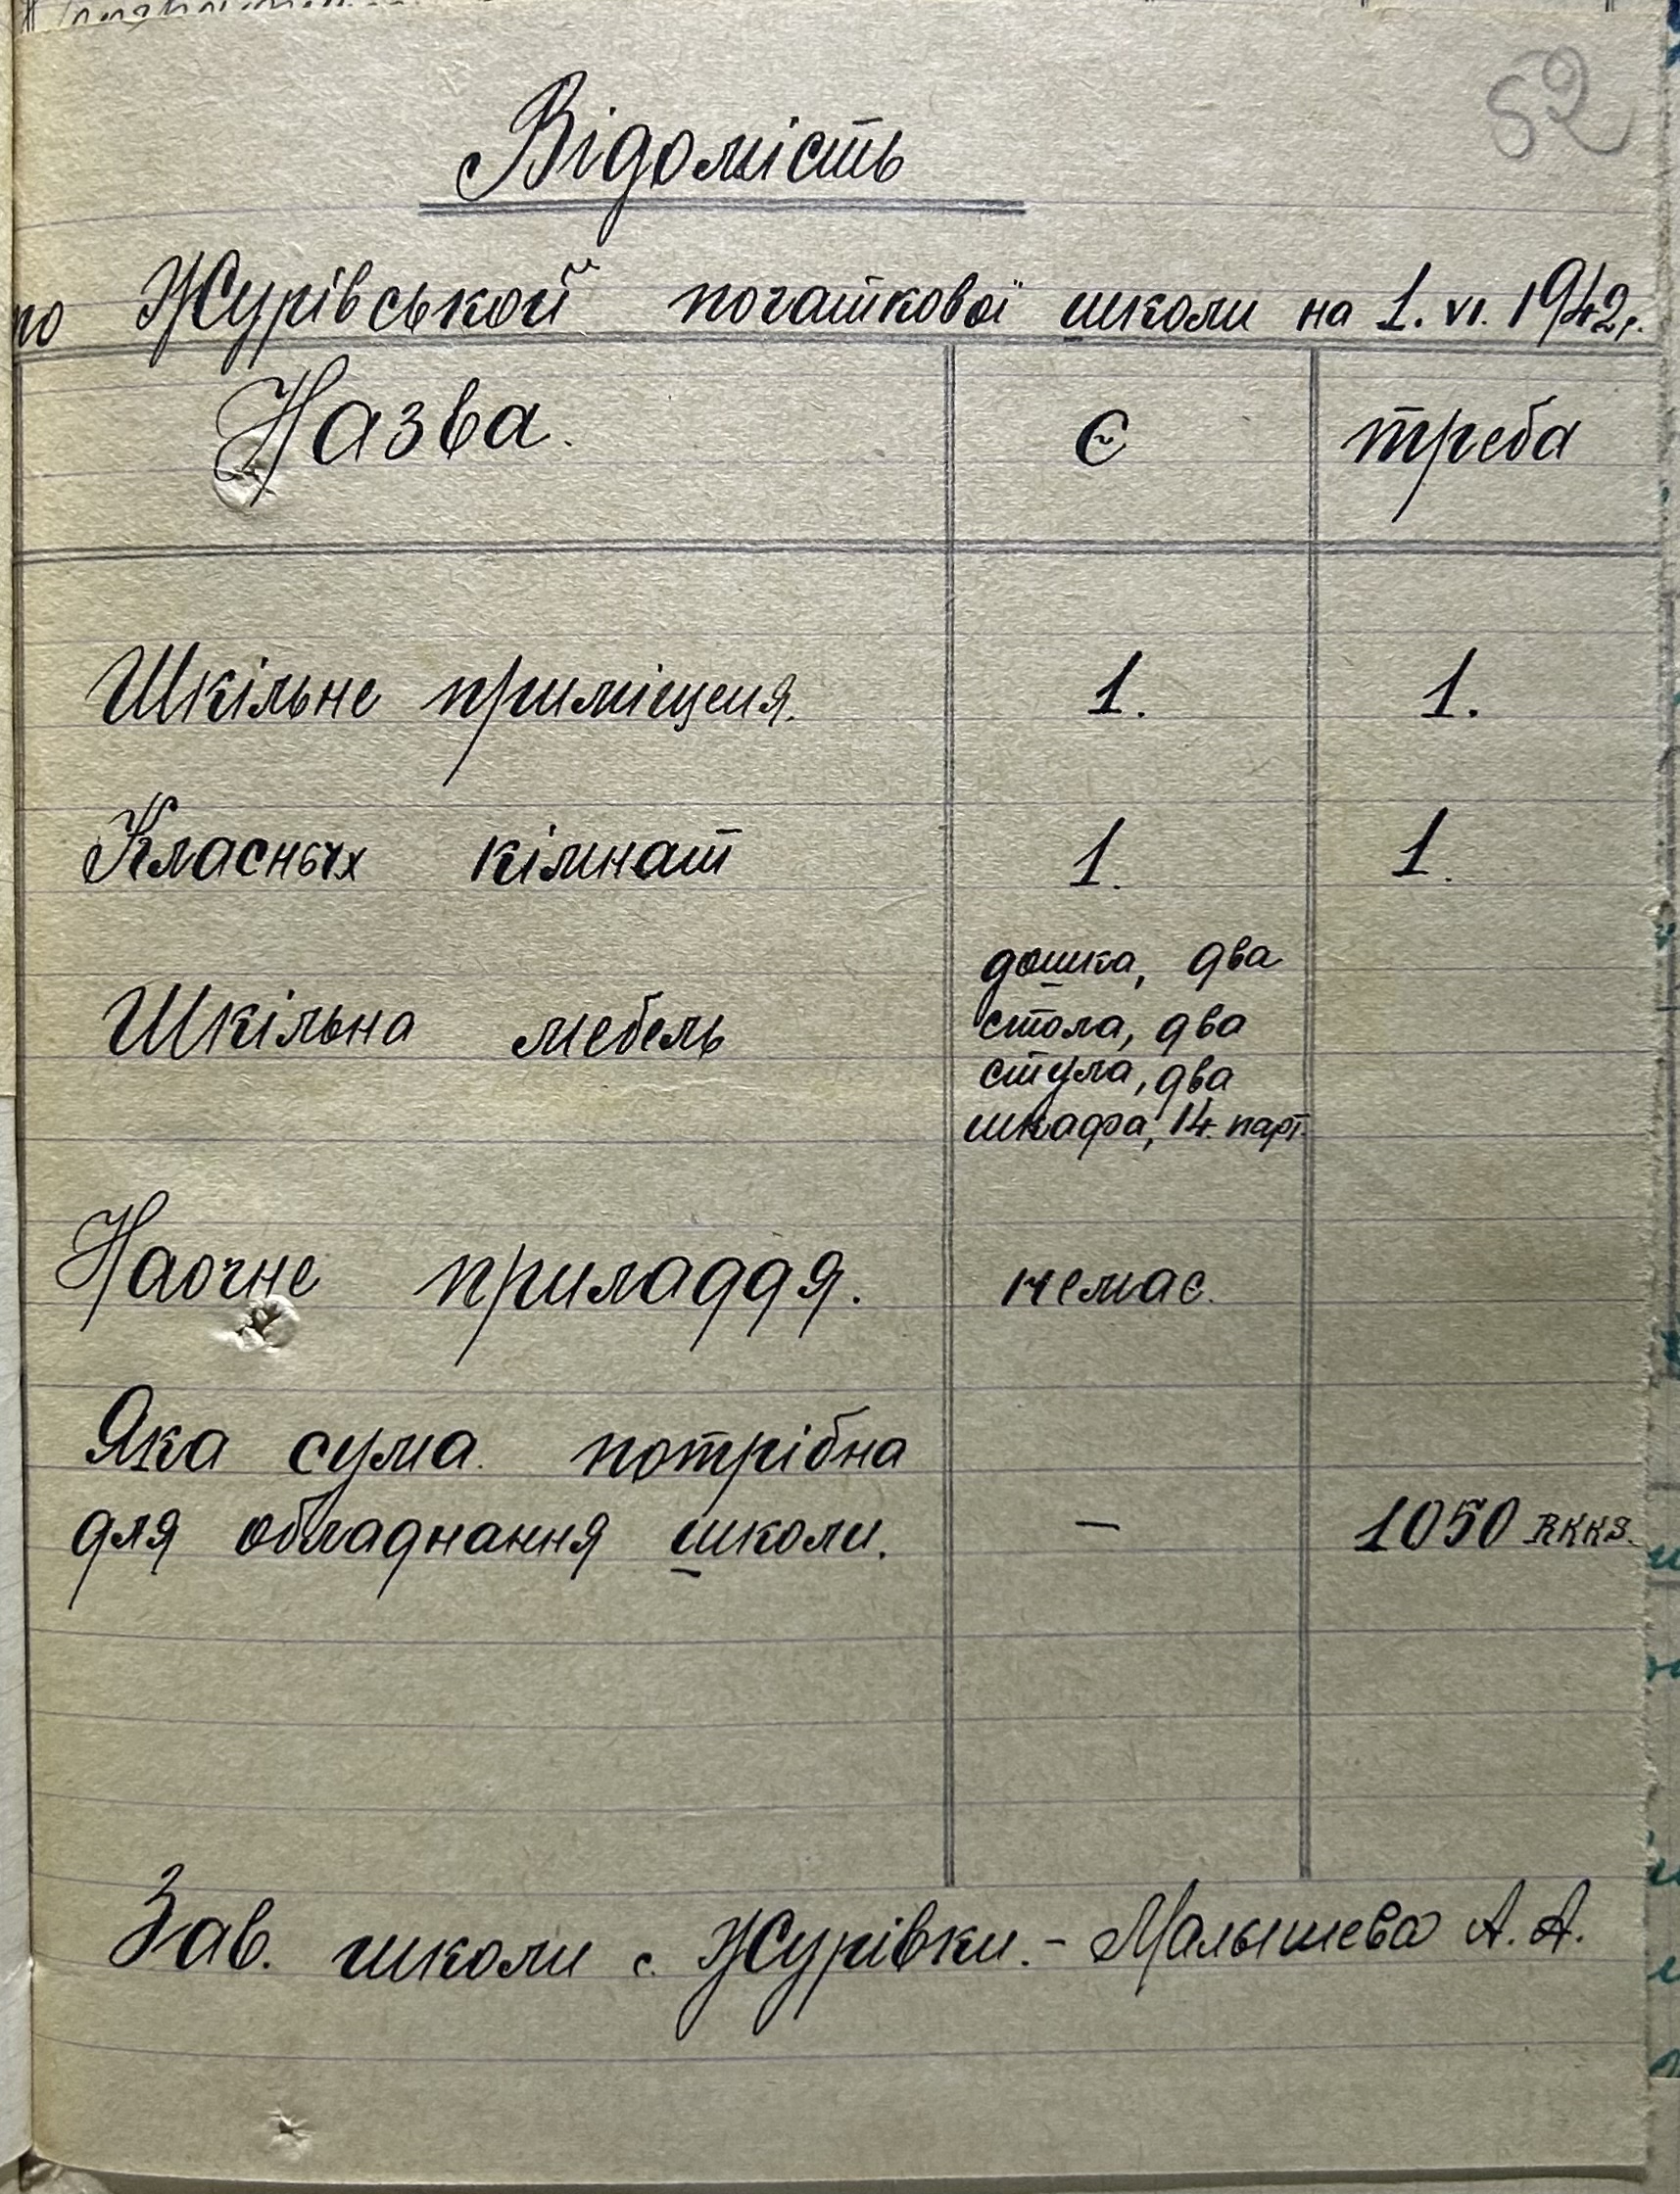 52
Відомість
по Журівськой початкової школи на 1. VI. 1942 р.
Назва. Є треба
Шкільне приміщеня. 1. 1.
Класных кімнат 1. 1.
Шкільна мебель дошка, два
стола, два
стула, два
шкафа, 14 парт.
Наочне приладдя. немає.
Яка сума потрібна
для обладнання школи. — 1050 RKKS.
Зав. школи с. Журівки. - Малышева А. А.